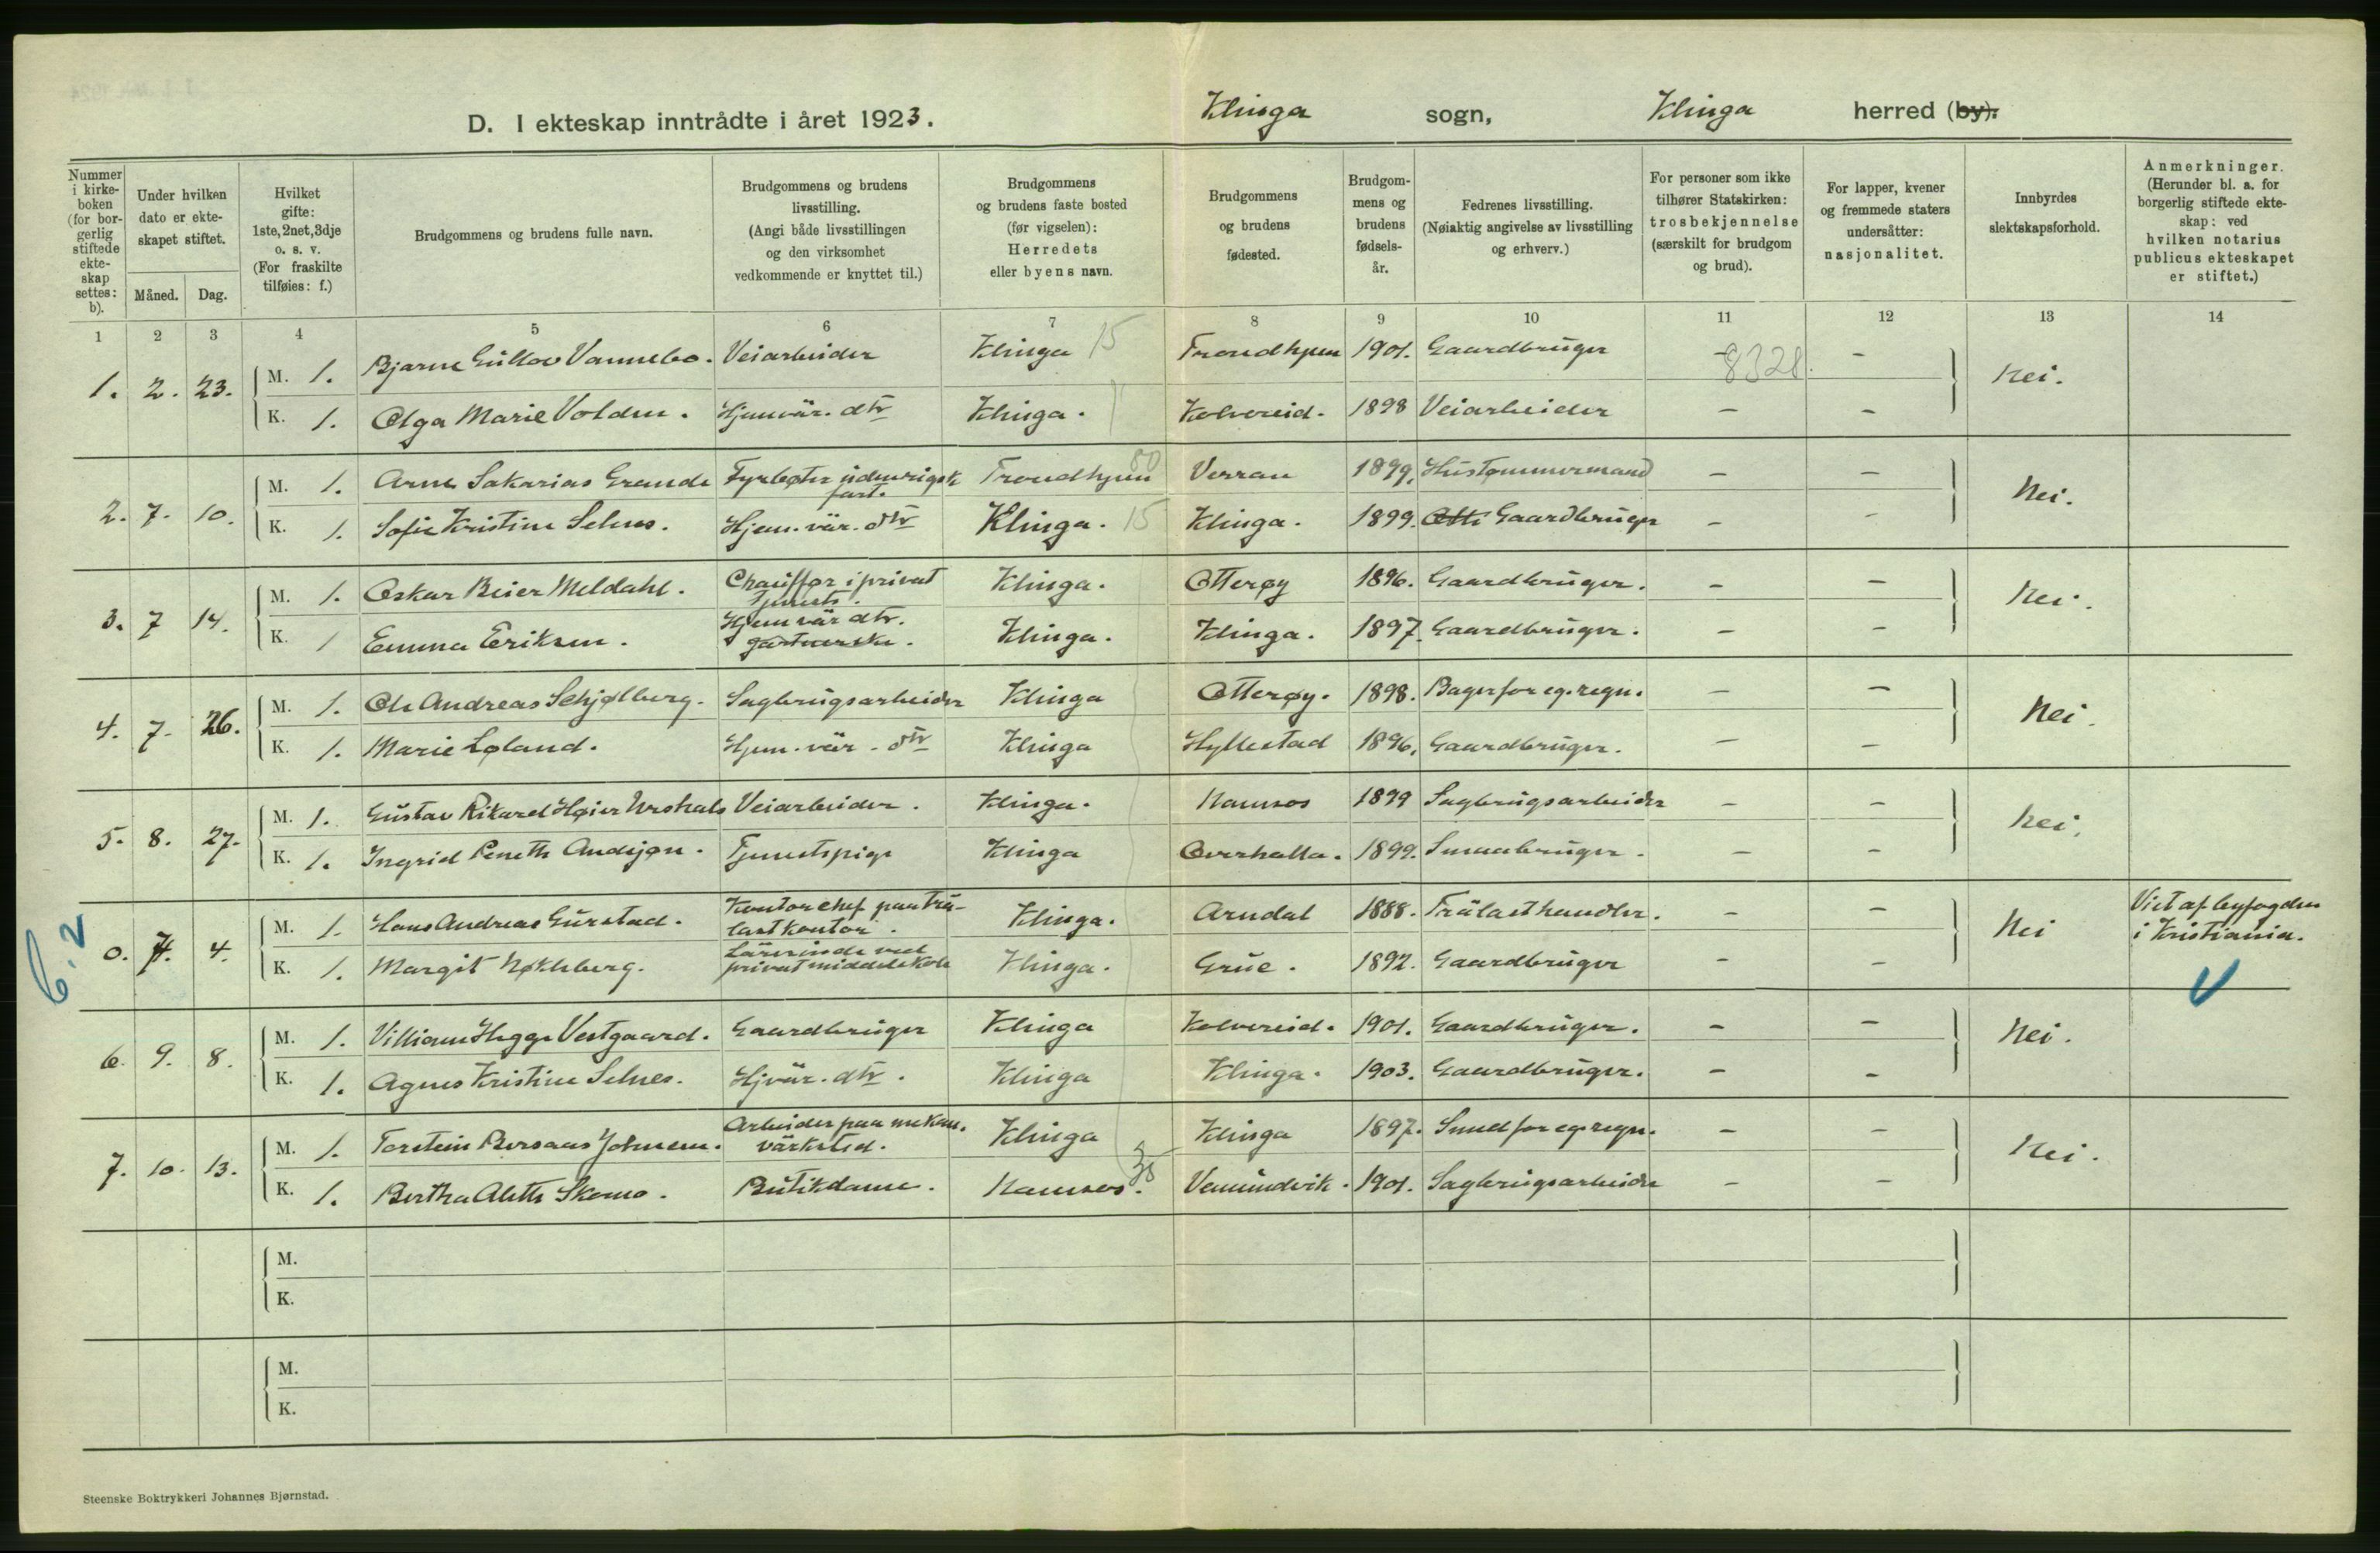 D. I ekteskap inntrådte i året 1923.
Klinga sogn, Klinga herred (by).
Nummer i kirke-boken (for bor-gerlig stiftede ekte-skap settes: b).
Under hvilken dato er ekte-skapet stiftet.
Måned. Dag.
Hvilket gifte: 1ste, 2net, 3dje o. s. v. (For fraskilte tilføies: f.)
Brudgommens og brudens fulle navn.
Brudgommens og brudens livsstilling. (Angi både livsstillingen og den virksomhet vedkommende er knyttet til.)
Brudgommens og brudens faste bosted (før vigselen): Herredets eller byens navn.
Brudgommens og brudens fødested.
Brudgom-mens og brudens fødsels-år.
Fedrenes livsstilling. (Nøiaktig angivelse av livsstilling og erhverv.)
For personer som ikke tilhører Statskirken: trosbekjennelse (særskilt for brudgom og brud).
For lapper, kvener og fremmede staters undersåtter: nasjonalitet.
Innbyrdes slektskapsforhold.
Anmerkninger. (Herunder bl. a. for borgerlig stiftede ekte-skap: ved hvilken notarius publicus ekteskapet er stiftet.)
1 2 3 4 5 6 7 8 9 10 11 12 13 14
1. 2. 23. M. 1. Bjarne Gullov Vannebo. Veiarbeider Klinga 15 Trondhjem 1901. Gaardbruger - 8328. - Nei.
K. 1. Olga Marie Volden. Hjemvær. dtr Klinga. Kolvereid. 1898 Veiarbeider - -
2. 7. 10. M. 1. Arne Sakarias Grande Fyrbøter udenrigsk fart. Trondhjem 80 Verran 1899. Hustømmermand - - Nei.
K. 1. Sofie Kristine Selnes. Hjem. vær. dtr Klinga. 15 Klinga. 1899. Gaardbruger - -
3. 7 14. M. 1. Oskar Beier Meldahl. Chauffør i privat tjeneste. Klinga. Otterøy 1896. Gaardbruger. - - Nei.
K. 1 Emma Eriksen. Hjemvær dtr. gartnerske. Klinga. Klinga. 1897. Gaardbruger. - -
4. 7. 26. M. 1. Ole Andreas Schjølberg. Sagbrugsarbeider Klinga Otterøy. 1898. Bager for eg. regn. - - Nei.
K. 1. Marie Løland. Hjem. vær. dtr Klinga Hyllestad 1896. Gaardbruger. - -
5. 8. 27. M. 1. Gustav Rikard Høier Veiarbeider. Klinga. Namsos 1899 Sagbrugsarbeider - - Nei.
K. 1. Ingrid Andsjøn. Tjenestepige Klinga Overhalla. 1899. Smaabruger. - -
6. 2
0. 7. 4. M. 1. Hans Andreas Gurstad. Kontorchef paa træ-lastkontor. Klinga. Arndal 1888. Trælasthandler. - - Nei Viet af byfogden i Kristiania.
K. 1. Margit Nøkleberg. Lærerinde ved privat middelskole Klinga. Grue. 1892. Gaardbruger - -
6. 9. 8. M. 1. Villiam Hegge Vestgaard. Gaardbruger Klinga Kolvereid. 1901. Gaardbruger. - - Nei.
K. 1. Agnes Kristine Selnes. Hjvær. dtr. Klinga Klinga. 1903. Gaardbruger. - -
7. 10. 13. M. 1. Torstein Bersaas Johnsen. Arbeider paa mekan. værksted. Klinga Klinga 1897. Smed for eg. regn. - - Nei.
K. 1. Bertha Aleth Skomo. Butikdame. Namsos. Vemundvik. 1901. Sagbrugsarbeider - -
M.
K.
M.
K.
Steenske Boktrykkeri Johannes Bjørnstad.